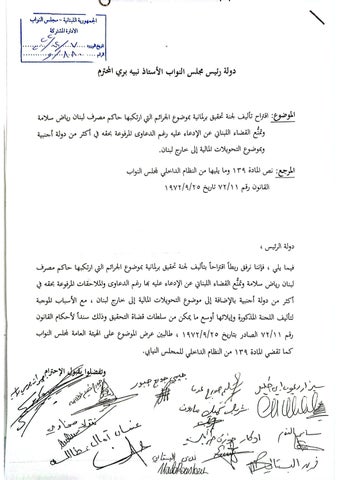 الجمهورية اللبنانية - مجلس النواب
الادارة المشتركة
دولة رئيس مجلس النواب الأستاذ نبيه بري المحترم
الموضوع: اقتراح تأليف لجنة تحقيق برلمانية بموضوع الجرائم التي ارتكبها حاكم مصرف لبنان رياض سلامة
وتمنّع القضاء اللبناني عن الإدعاء عليه رغم الدعاوى المرفوعة بحقه في أكثر من دولة أجنبية
وبموضوع التحويلات المالية إلى خارج لبنان.
المرجع: نص المادة ١٣٩ وما يليها من النظام الداخلي لمجلس النواب
القانون رقم ٧٢/١١ تاريخ ١٩٧٢/٩/٢٥
دولة الرئيس ،
فيما يلي، فإننا نرفق ربطاً اقتراحاً بتأليف لجنة تحقيق برلمانية بموضوع الجرائم التي ارتكبها حاكم مصرف
لبنان رياض سلامة وتمنّع القضاء اللبناني عن الإدعاء عليه رغم الدعاوى والملاحقات المرفوعة بحقه في
أكثر من دولة أجنبية بالإضافة إلى موضوع التحويلات المالية إلى خارج لبنان ، مع الأسباب الموجبة
لتأليف اللجنة المذكورة وإيلائها أوسع ما يمكن من سلطات قضاة التحقيق وذلك سنداً لأحكام القانون
رقم ٧٢/١١ الصادر بتاريخ ١٩٧٢/٩/٢٥ ، طالبين عرض الموضوع على الهيئة العامة لمجلس النواب
كما تقتضي المادة ١٣٩ من النظام الداخلي للمجلس النيابي.
وتفضلوا بقبول الإحترام
فريد البستاني